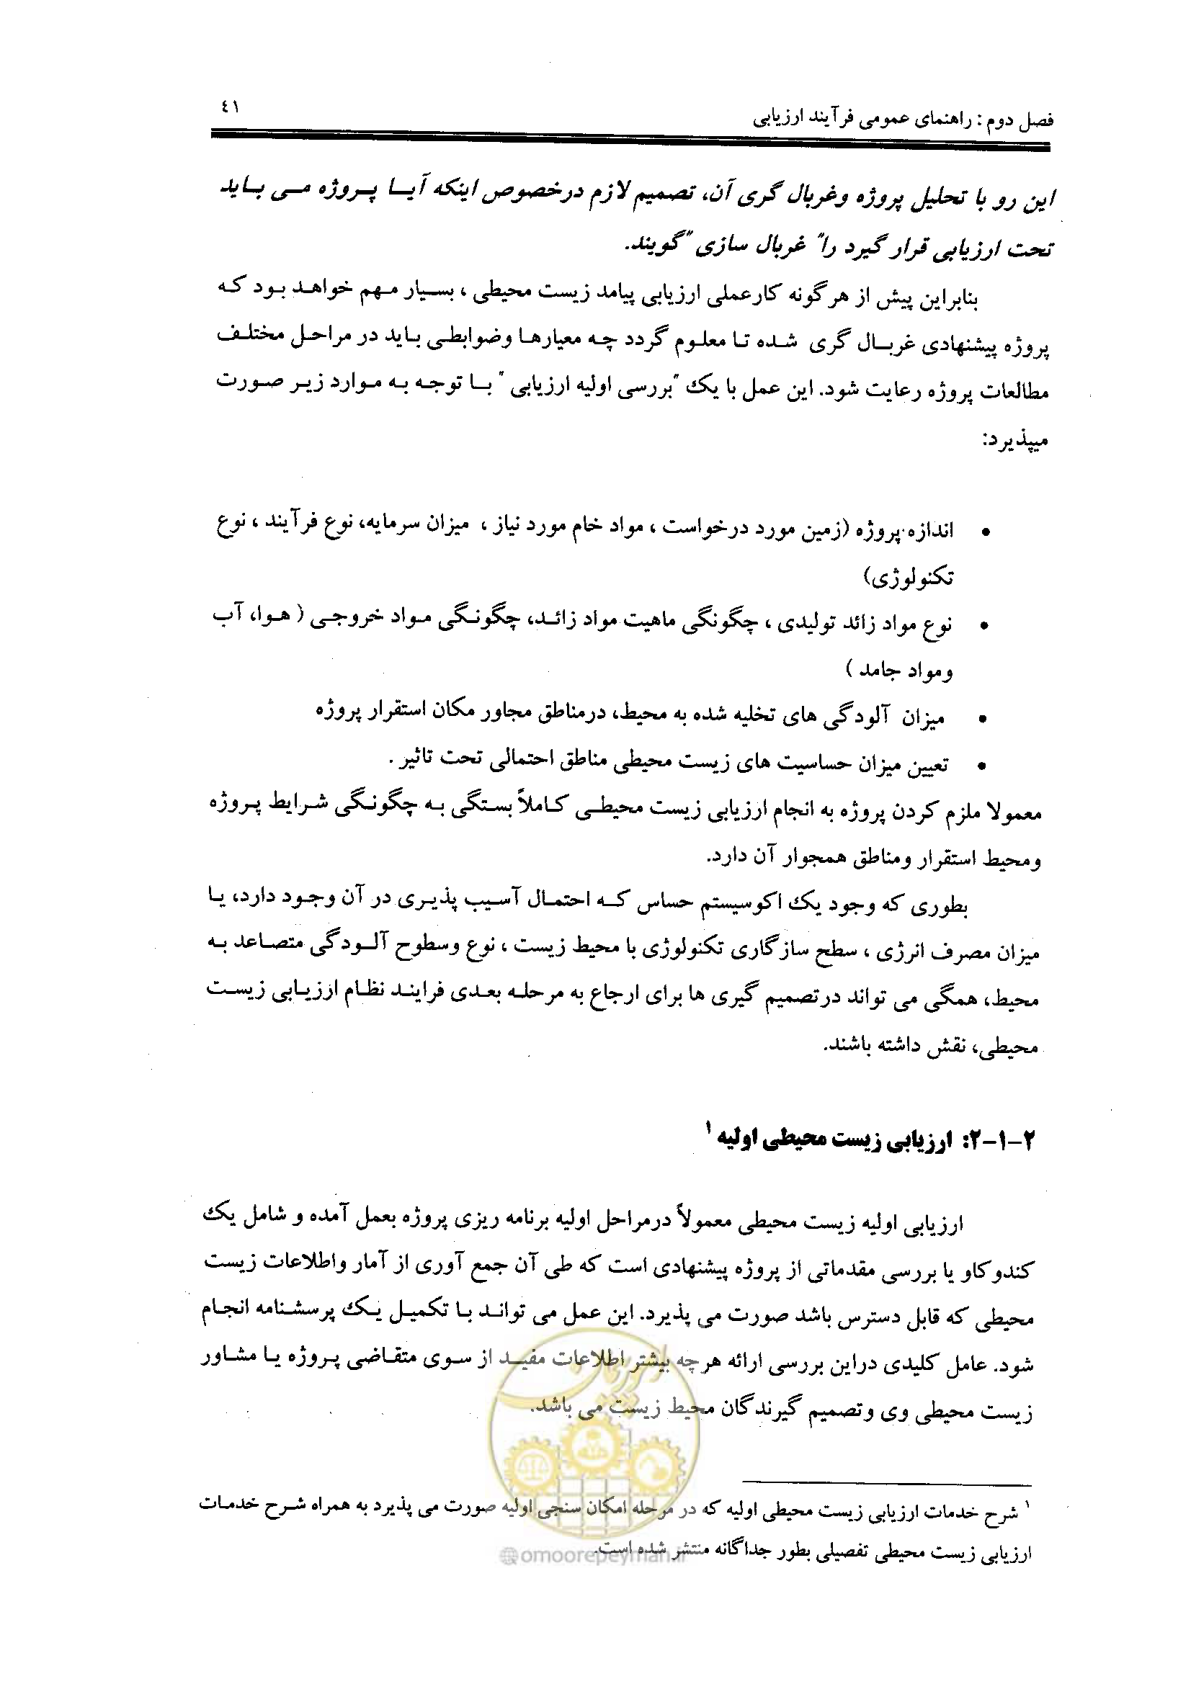 فصل دوم : راهنمای عمومی فرآیند ارزیابی
٤١
این رو با تحلیل پروژه وغربال گری آن، تصمیم لازم درخصوص اینکه آیا پروژه می باید
تحت ارزیابی قرار گیرد را" غربال سازی "گویند.
بنابراین پیش از هرگونه کارعملی ارزیابی پیامد زیست محیطی ، بسیار مهم خواهد بود که
پروژه پیشنهادی غربال گری شده تا معلوم گردد چه معیارها وضوابطی باید در مراحل مختلف
مطالعات پروژه رعایت شود. این عمل با یک "بررسی اولیه ارزیابی " با توجه به موارد زیر صورت
میپذیرد:
• اندازه پروژه (زمین مورد درخواست ، مواد خام مورد نیاز ، میزان سرمایه، نوع فرآیند ، نوع
تکنولوژی)
• نوع مواد زائد تولیدی ، چگونگی ماهیت مواد زائد، چگونگی مواد خروجی ( هوا، آب
ومواد جامد )
• میزان آلودگی های تخلیه شده به محیط، درمناطق مجاور مکان استقرار پروژه
• تعیین میزان حساسیت های زیست محیطی مناطق احتمالی تحت تاثیر .
معمولا ملزم کردن پروژه به انجام ارزیابی زیست محیطی کاملاً بستگی به چگونگی شرایط پروژه
ومحیط استقرار ومناطق همجوار آن دارد.
بطوری که وجود یک اکوسیستم حساس که احتمال آسیب پذیری در آن وجود دارد، یا
میزان مصرف انرژی ، سطح سازگاری تکنولوژی با محیط زیست ، نوع وسطوح آلودگی متصاعد به
محیط، همگی می تواند درتصمیم گیری ها برای ارجاع به مرحله بعدی فرایند نظام ارزیابی زیست
محیطی، نقش داشته باشند.
۲-۱-۲: ارزیابی زیست محیطی اولیه ۱
ارزیابی اولیه زیست محیطی معمولاً درمراحل اولیه برنامه ریزی پروژه بعمل آمده و شامل یک
کندوکاو یا بررسی مقدماتی از پروژه پیشنهادی است که طی آن جمع آوری از آمار واطلاعات زیست
محیطی که قابل دسترس باشد صورت می پذیرد. این عمل می تواند با تکمیل یک پرسشنامه انجام
شود. عامل کلیدی دراین بررسی ارائه هرچه بیشتر اطلاعات مفید از سوی متقاضی پروژه یا مشاور
زیست محیطی وی وتصمیم گیرندگان محیط زیست می باشد.
۱ شرح خدمات ارزیابی زیست محیطی اولیه که در مرحله امکان سنجی اولیه صورت می پذیرد به همراه شرح خدمات
ارزیابی زیست محیطی تفصیلی بطور جداگانه منتشر شده است.
امور پیمان
@omoorepeyman.ir